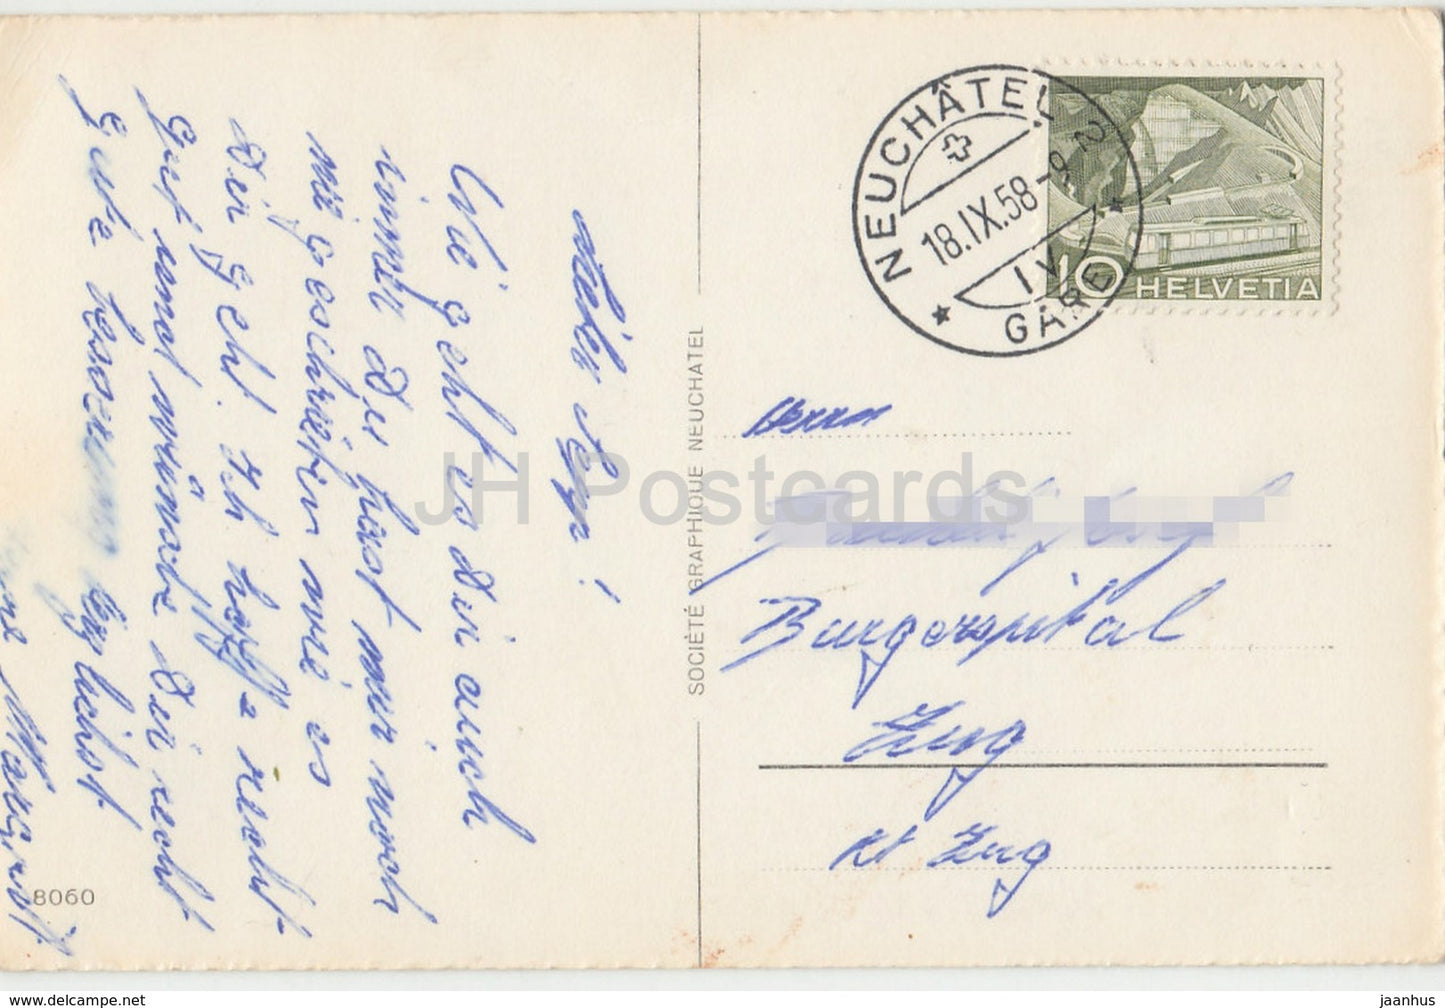 Lieber Sepp!
Wie geht es Dir auch
immer Du hast mir noch
nie geschrieben wie es
Dir geht. Ich hoffe recht
Gut und wünsche Dir recht
Gute besserung
Margrit
8060
SOCIÉTÉ GRAPHIQUE NEUCHATEL
NEUCHÂTEL 2
18.IX.58-9
IV
GARE
10 HELVETIA
Herrn
Burgerspital
Zug
Kt Zug
JH Postcards
www.delcampe.net
jaanhus